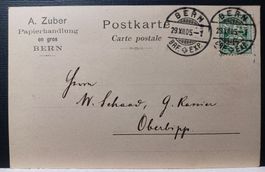 A. Zuber
Papierhandlung
en gros
BERN
Postkarte
Carte postale
BERN
29.XII.05.-1
BRF. EXP.
BERN
29.XII.05.-1
BRF. EXP.
Herrn
W. Schaad, G. Kassier
Oberbipp